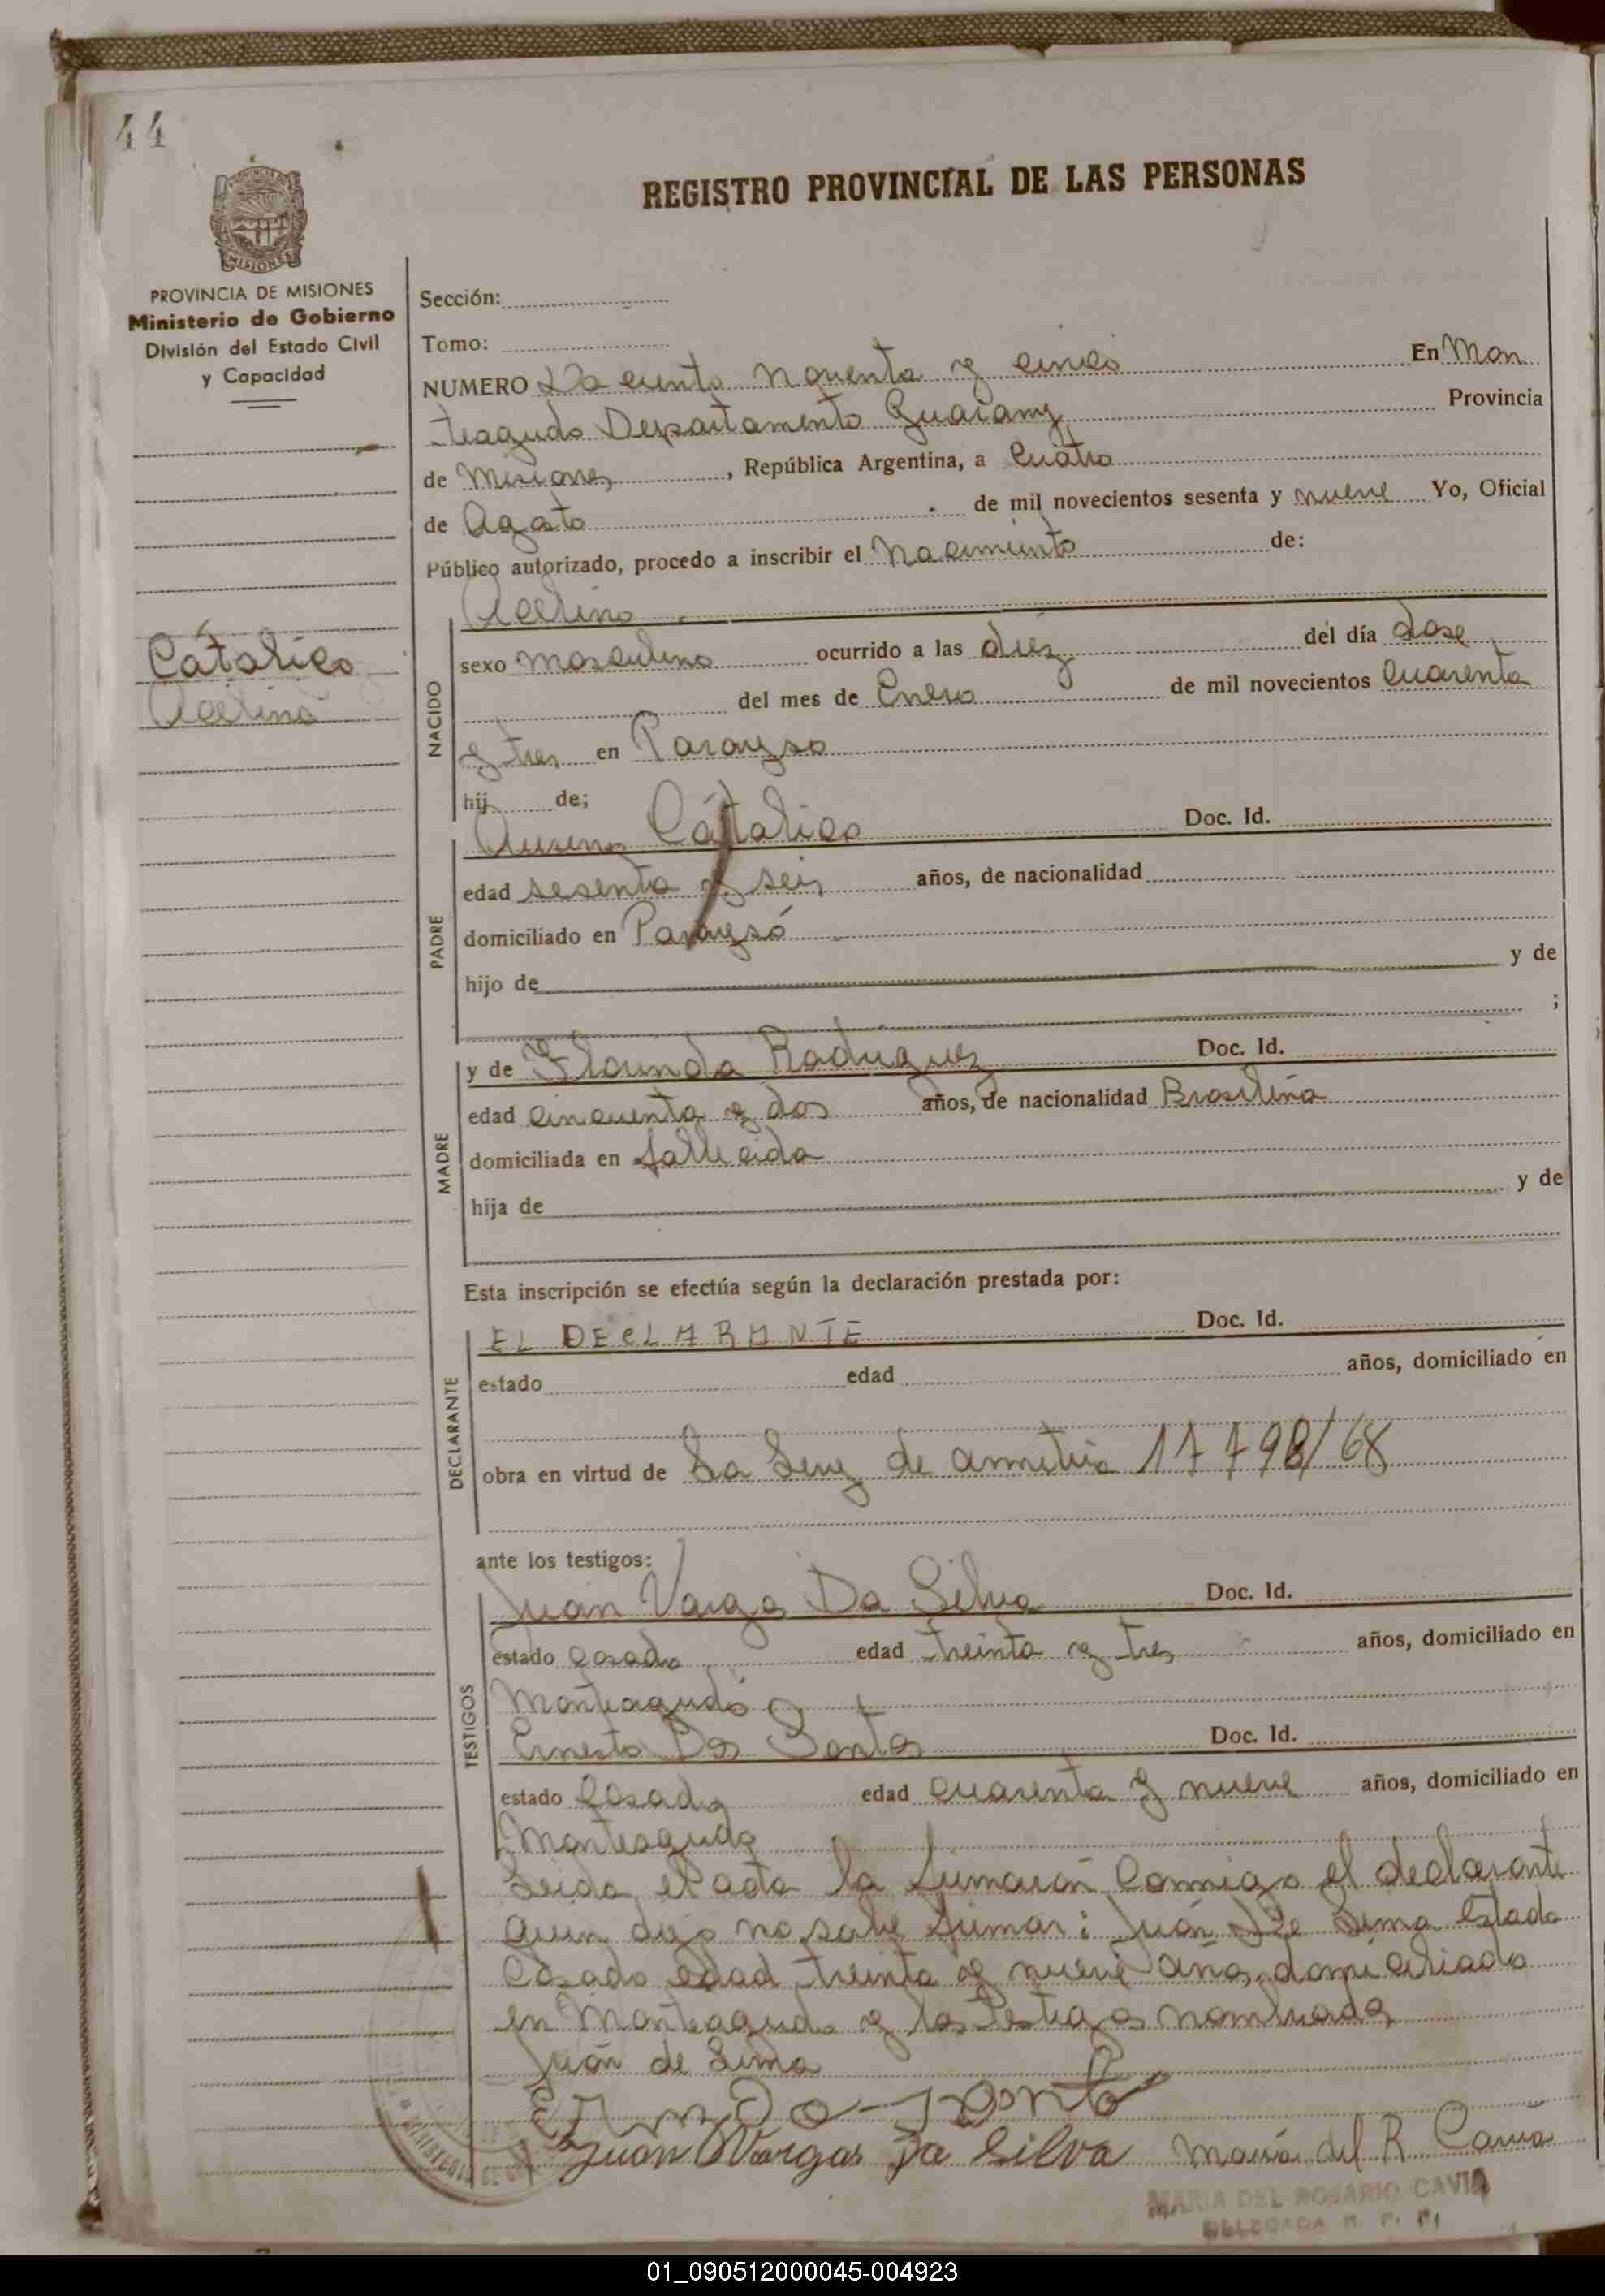 44
REGISTRO PROVINCIAL DE LAS PERSONAS
MISIONES
PROVINCIA DE MISIONES
Ministerio de Gobierno
División del Estado Civil
y Capacidad
Sección:
Tomo:
NUMERO Doscientos noventa y cinco En Mon
teagudo Departamento Guarany Provincia
de Misiones, República Argentina, a Cuatro
de Agosto de mil novecientos sesenta y nueve Yo, Oficial
Público autorizado, procedo a inscribir el Nacimiento de:
Católico
Acelino
NACIDO
Acelino
sexo masculino ocurrido a las diez del día dose
del mes de Enero de mil novecientos cuarenta
y tres en Parayso
hij de;
PADRE
Católico Doc. Id.
edad sesenta y seis años, de nacionalidad
domiciliado en Parayso
hijo de y de
;
MADRE
y de Florinda Rodriguez Doc. Id.
edad cincuenta y dos años, de nacionalidad Brasileña
domiciliada en fallecida
hija de y de
Esta inscripción se efectúa según la declaración prestada por:
DECLARANTE
EL DECLARANTE Doc. Id.
estado edad años, domiciliado en
obra en virtud de La Ley de amnetia 17798/68
ante los testigos:
TESTIGOS
Juan Vargas Da Silva Doc. Id.
estado casado edad treinta y tres años, domiciliado en
Monteagudo
Ernesto Dos Santos Doc. Id.
estado Casado edad cuarenta y nueve años, domiciliado en
Monteagudo
Leida el acta la firmaron conmigo el declarante
quien dijo no saber firmar: Juan De Lima Estado
Casado edad treinta y nueve años, domiciliado
en Monteagudo y los testigos nombrados
Juan de Lima
Juan Vargas Da Silva Maria del R. Cavia
MARIA DEL ROSARIO CAVIA
DELEGADA R. P. P.
01_090512000045-004923